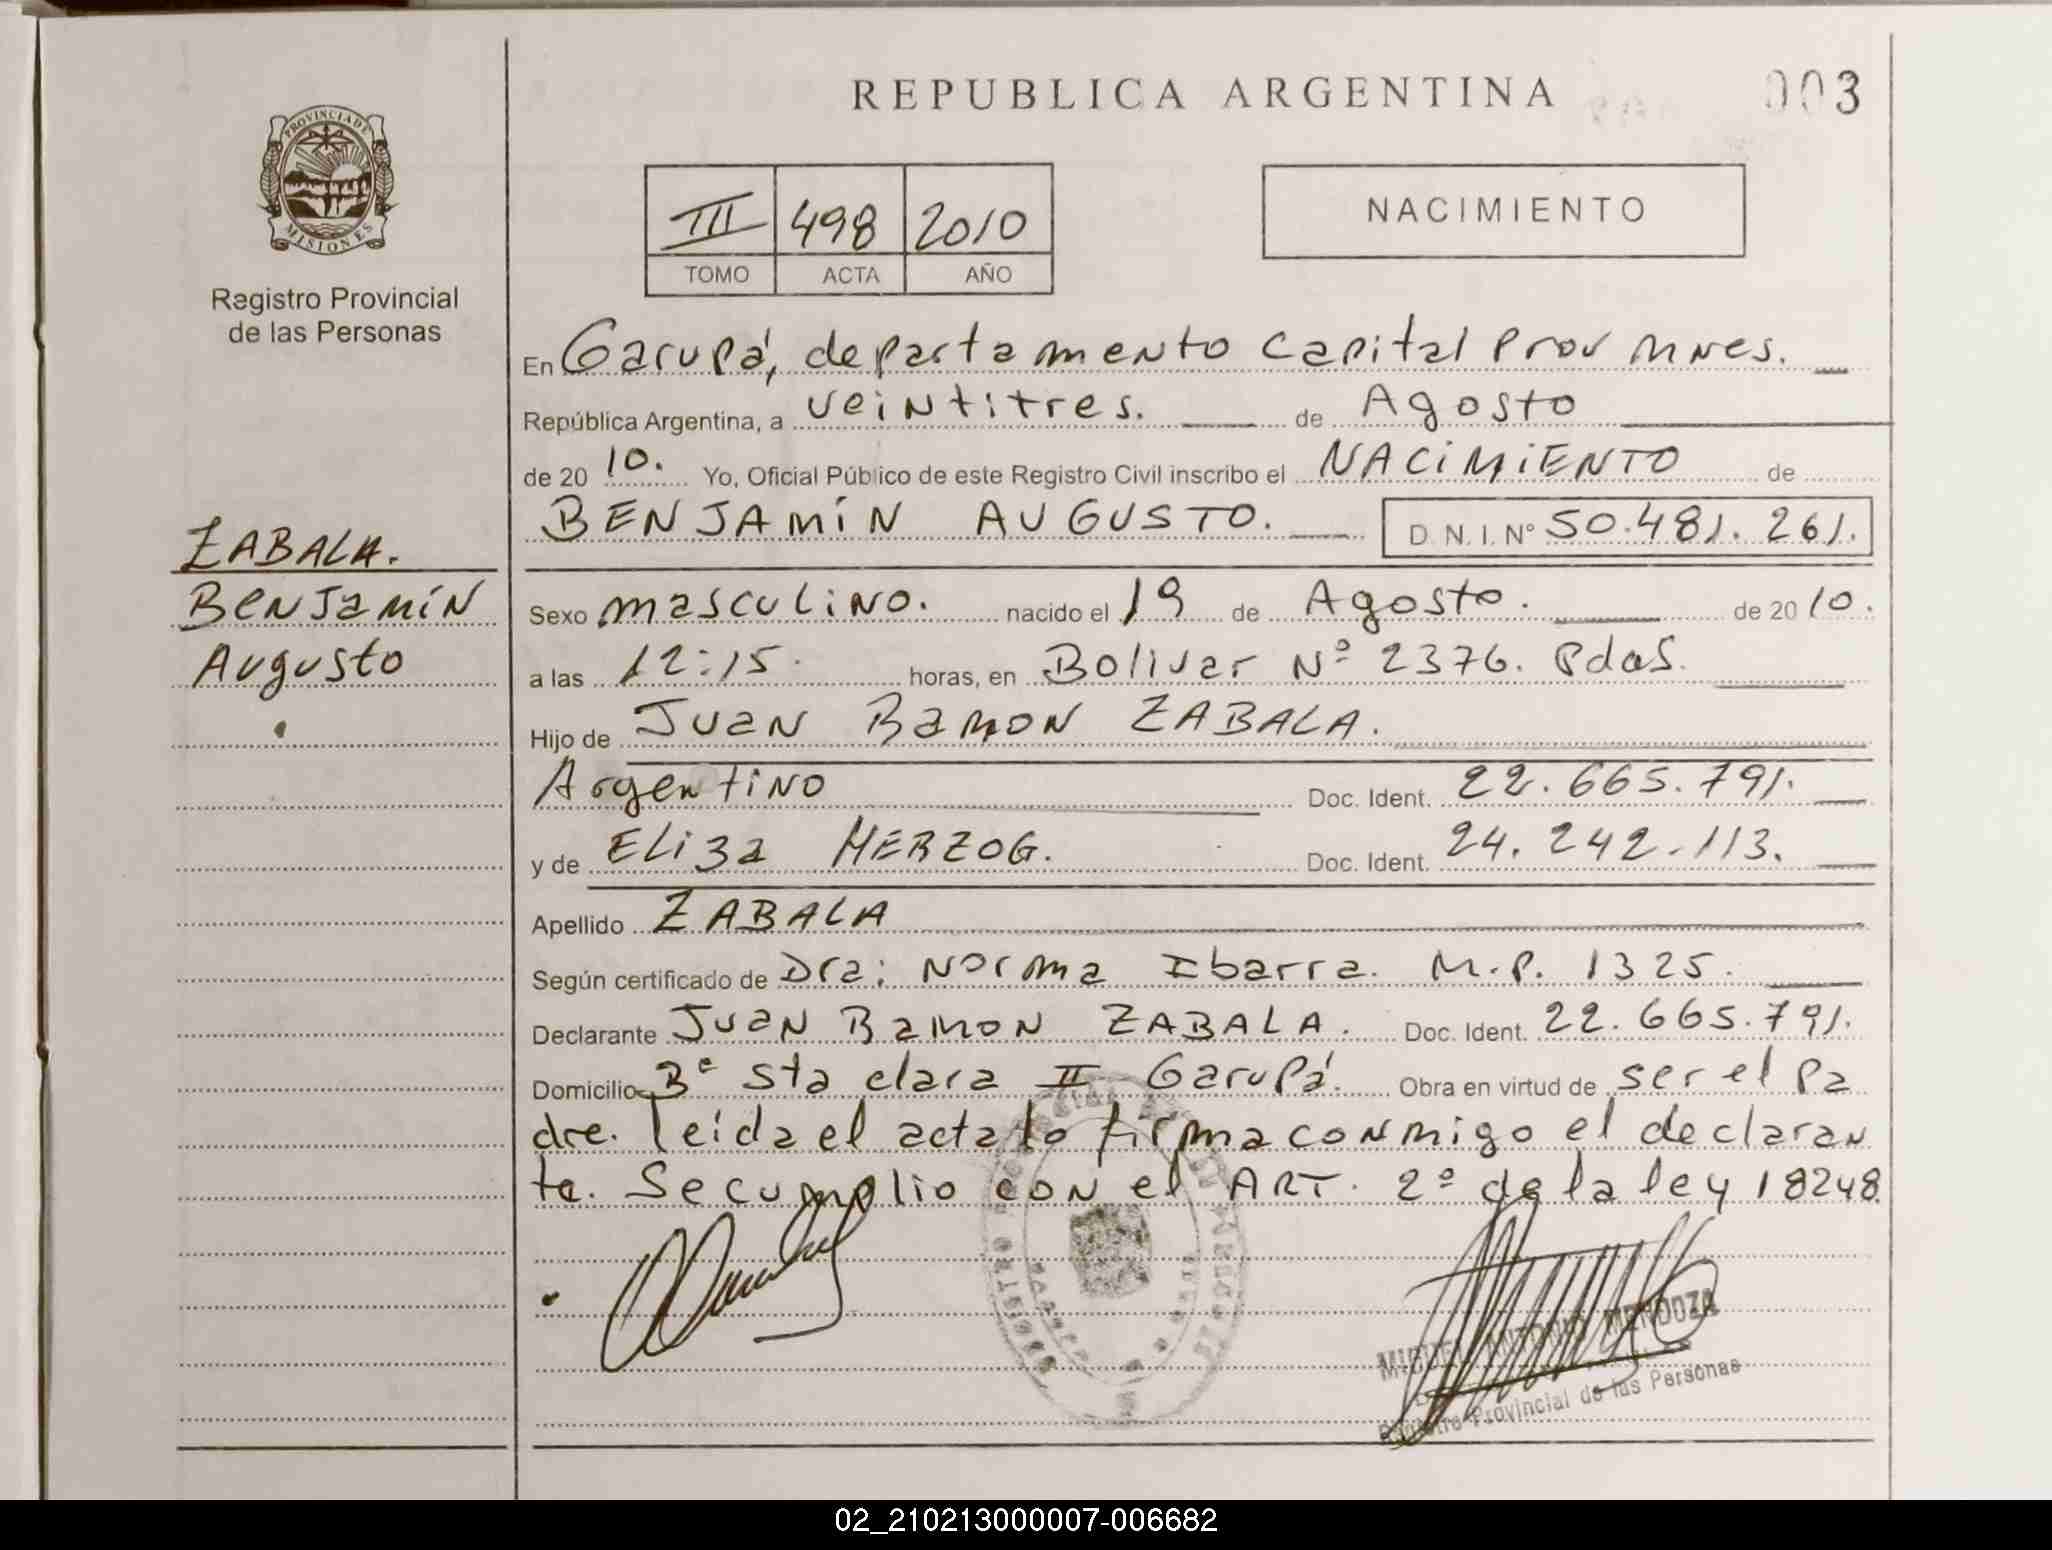 REPUBLICA ARGENTINA
003
PROVINCIA DE
MISIONES
Registro Provincial
de las Personas
III 498 2010
TOMO ACTA AÑO
NACIMIENTO
En Garupá, departamento Capital Prov Mnes.
República Argentina, a veintitres. de Agosto
de 20 10. Yo, Oficial Público de este Registro Civil inscribo el NACIMIENTO de
BENJAMÍN AUGUSTO. D. N. I. Nº 50.481.261.
ZABALA.
Benjamín
Augusto
Sexo masculino. nacido el 19 de Agosto. de 20 10.
a las 12:15. horas, en Bolivar Nº 2376. Pdas.
Hijo de Juan Ramon ZABALA.
Argentino Doc. Ident. 22.665.791.
y de Eliza HERZOG. Doc. Ident. 24.242.113.
Apellido ZABALA
Según certificado de Dra: Norma Ibarra. M.P. 1325.
Declarante Juan Ramon ZABALA. Doc. Ident. 22.665.791.
Domicilio Bº Sta clara II Garupá. Obra en virtud de ser el Pa
dre. leída el acta lo firma conmigo el declaran
te. Se cumplio con el ART. 2º de la ley 18248.
MIGUEL ANTONIO MENDOZA
Registro Provincial de las Personas
02_210213000007-006682